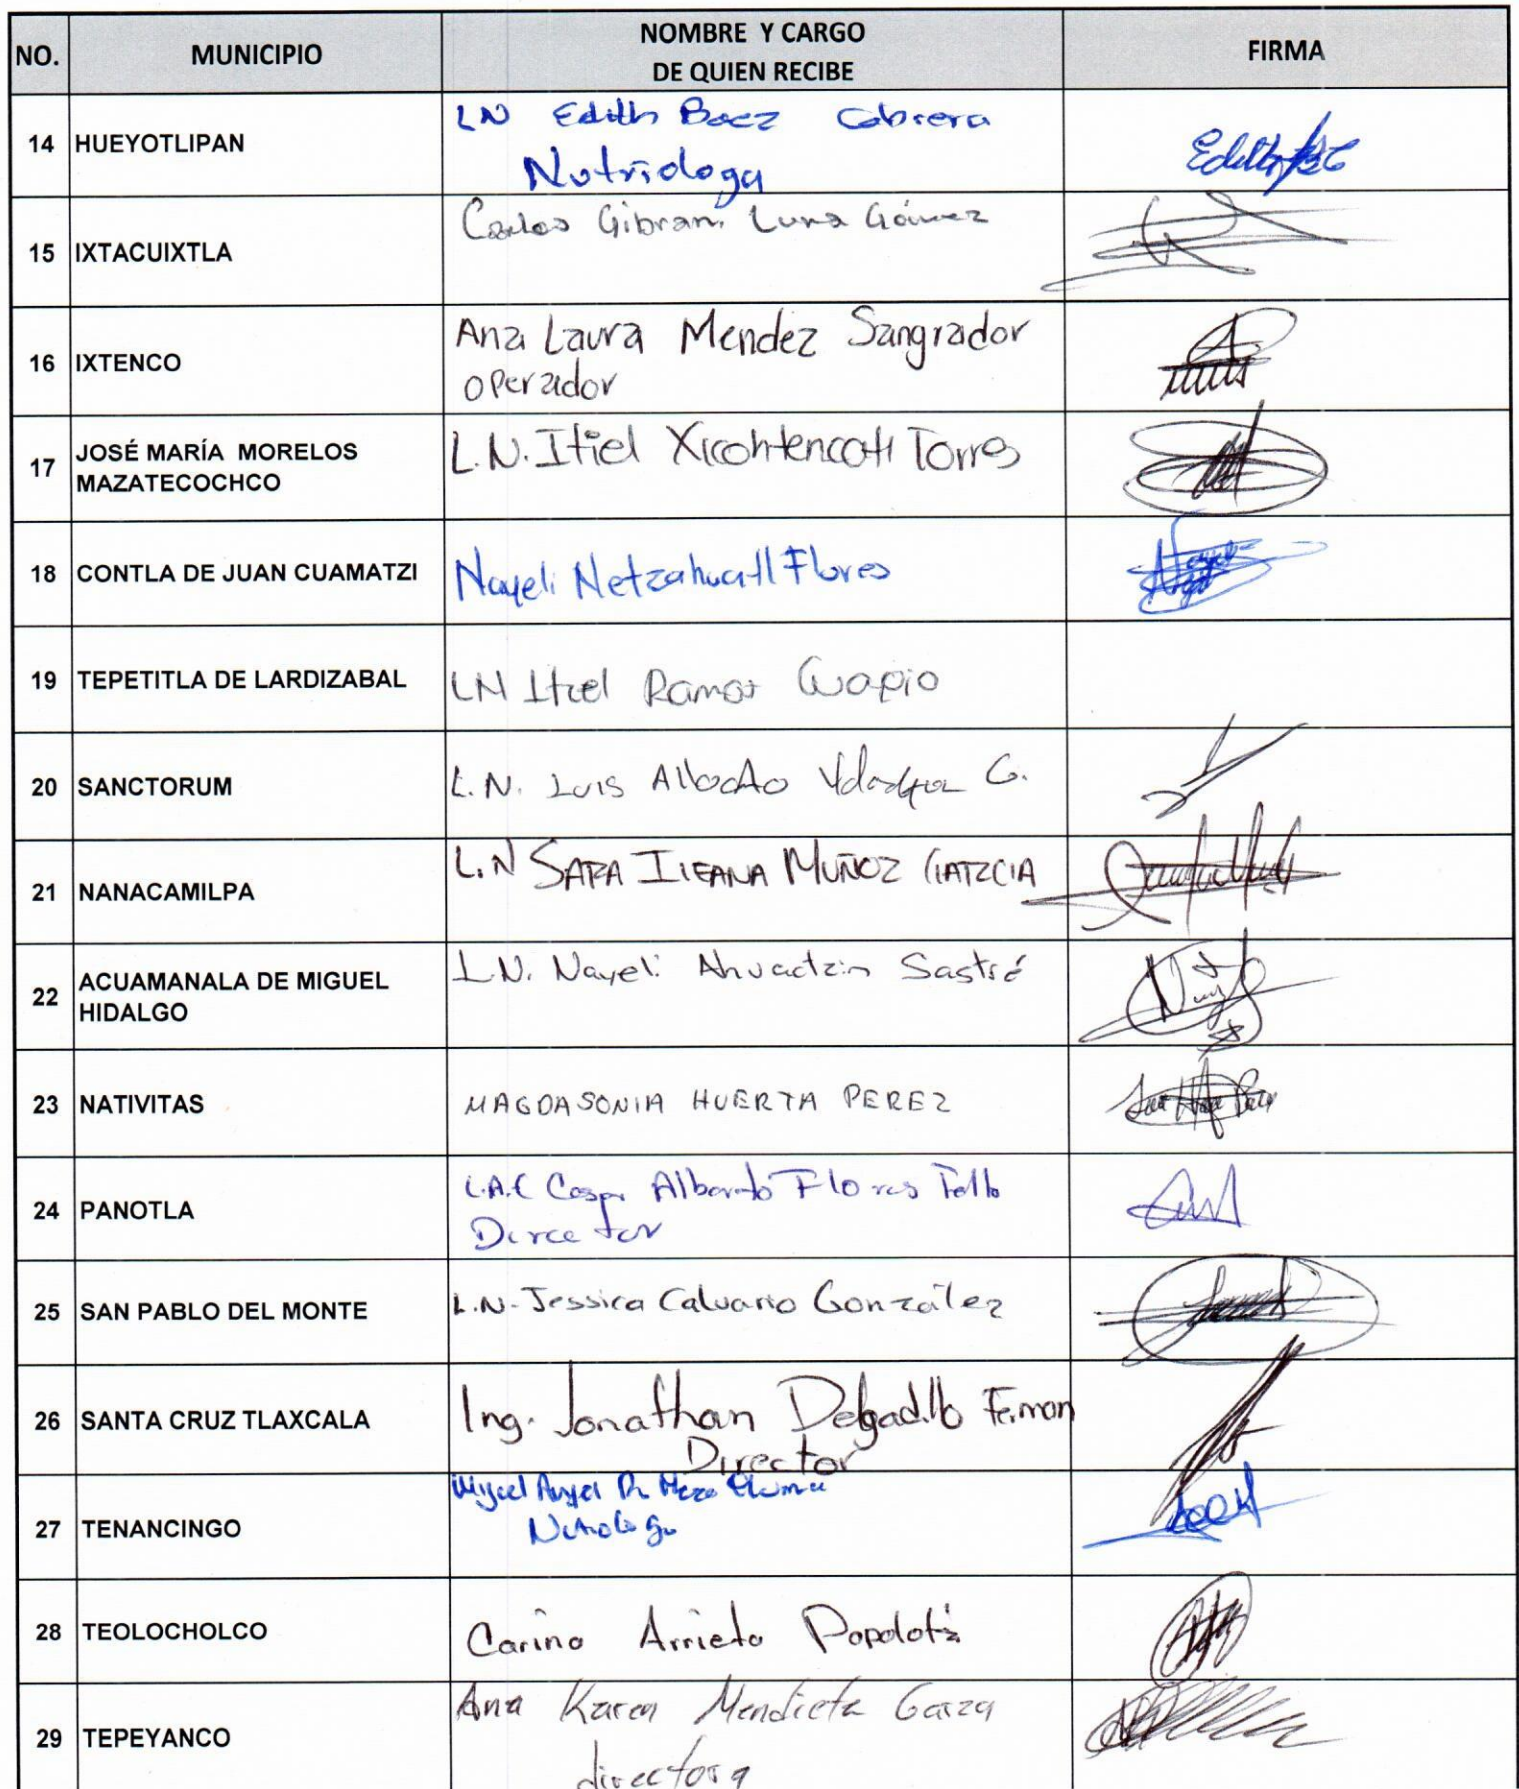 NO. MUNICIPIO NOMBRE Y CARGO DE QUIEN RECIBE FIRMA
14 HUEYOTLIPAN LN Edith Baez Cabrera
Nutriologa
15 IXTACUIXTLA Carlos Gibran Luna Gómez
16 IXTENCO Ana Laura Mendez Sangrador
operador
17 JOSÉ MARÍA MORELOS MAZATECOCHCO L.N. Itiel Xicohtencatl Torres
18 CONTLA DE JUAN CUAMATZI Nayeli Netzahuatl Flores
19 TEPETITLA DE LARDIZABAL LN Itzel Ramos
20 SANCTORUM L.N. Luis Alberto G.
21 NANACAMILPA L.N SARA ILEANA MUÑOZ GARCIA
22 ACUAMANALA DE MIGUEL HIDALGO L.N. Nayeli Ahuactzin Sastré
23 NATIVITAS MAGDA SONIA HUERTA PEREZ
24 PANOTLA Alberto Flores Tello
Director
25 SAN PABLO DEL MONTE L.N. Jessica Calvario González
26 SANTA CRUZ TLAXCALA Ing. Jonathan Delgadillo
Director
27 TENANCINGO Miguel Angel
28 TEOLOCHOLCO Carina Arrieta
29 TEPEYANCO Ana Karen Mendieta Garza
directora